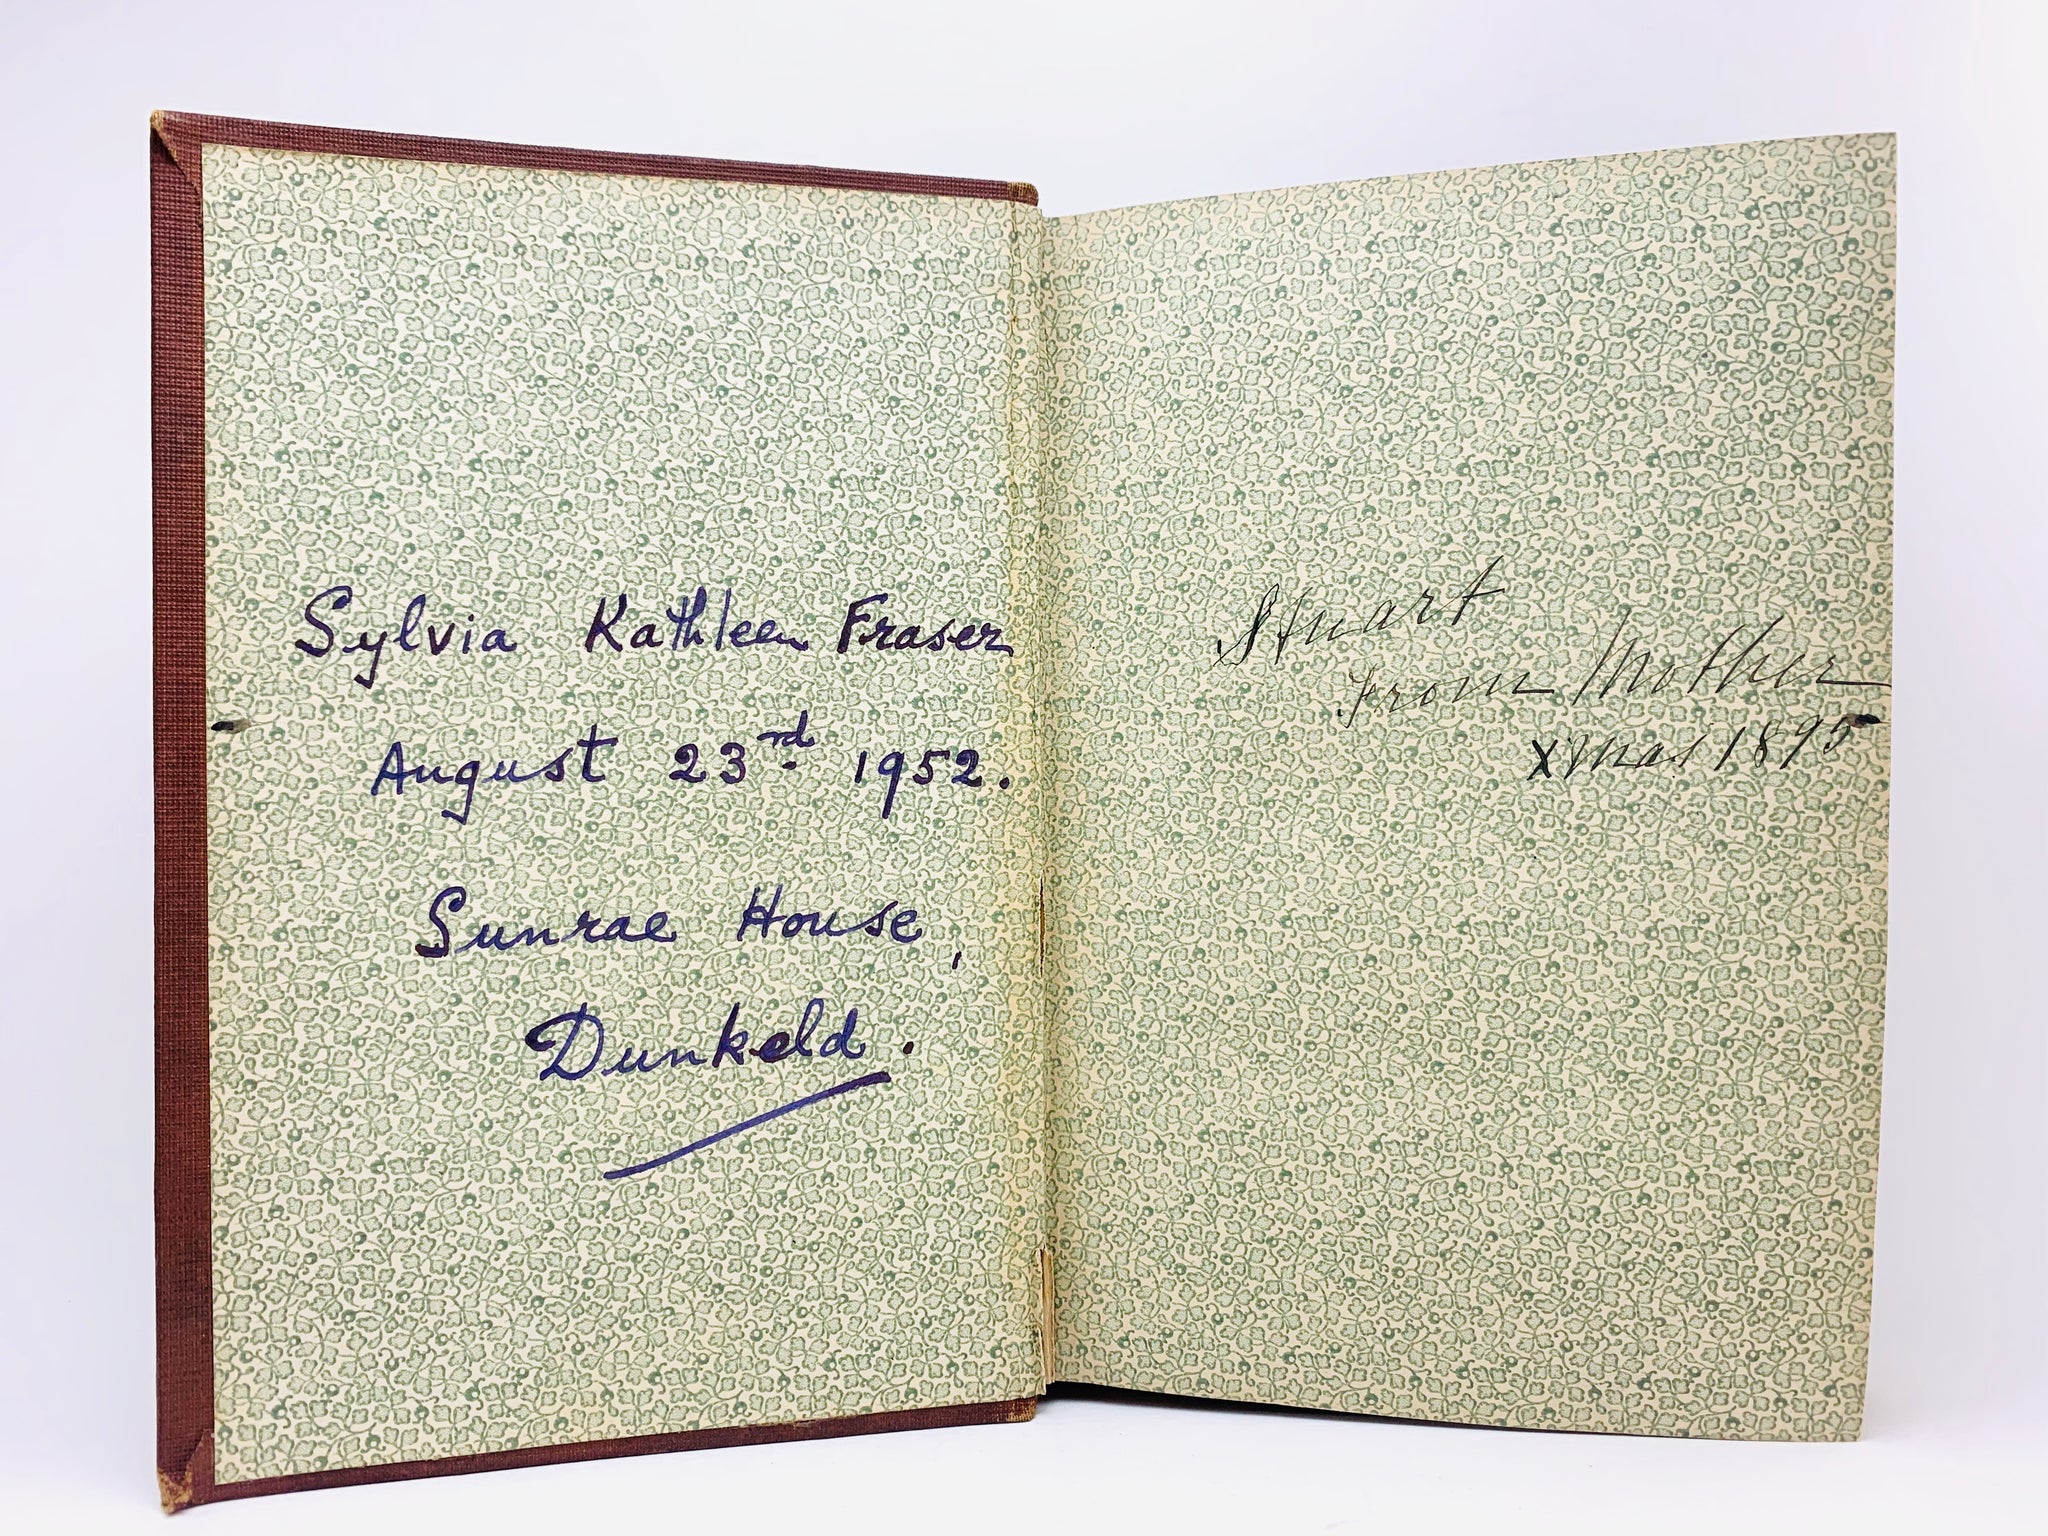 Sylvia Kathleen Fraser
August 23rd. 1952.
Sunrae House,
Dunkeld.
Stuart
From Mother
Xmas 1895